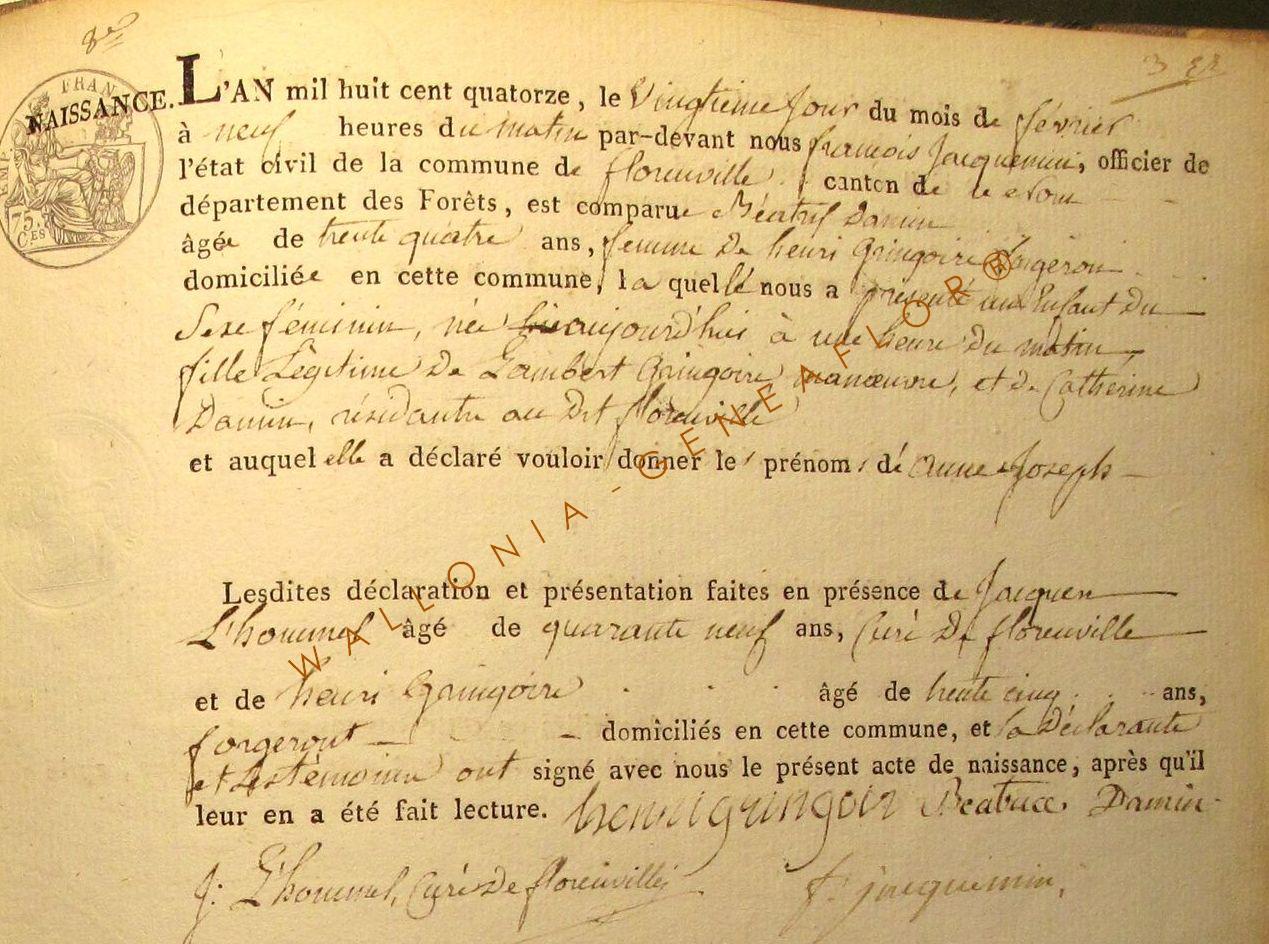 8e
3 
FRAN
EMP.
75.
CES
NAISSANCE.
L'AN mil huit cent quatorze, le Vingtieme jour du mois de février
à neuf heures du matin par-devant nous francois Jacquemin, officier de
l'état civil de la commune de florenville canton de ce nom
département des Forêts, est comparue Béatrix Damin
âgée de trente quatre ans, femme de henri Gringoire forgeron
domiciliée en cette commune, la quelle nous a présenté un Enfant du
Sexe féminin, née aujourd'hui à une heure du matin,
fille Légitime de Lambert Gringoire manœuvre, et de Catherine
Damin, résidante au Dit florenville
et auquel elle a déclaré vouloir donner le prénom de anne Joseph
Lesdites déclaration et présentation faites en présence de Jacques
L'hommel âgé de quarante neuf ans, Curé De florenville
et de henri Gringoire âgé de trente cinq ans,
forgeront domiciliés en cette commune, et la Déclarante
et Les témoins ont signé avec nous le présent acte de naissance, après qu'il
leur en a été fait lecture. henri gringoir Beatrice Damin
J: L'hommel, Curé De florenville f. jacquemin,
WALLONIA - GENEAFLOR®